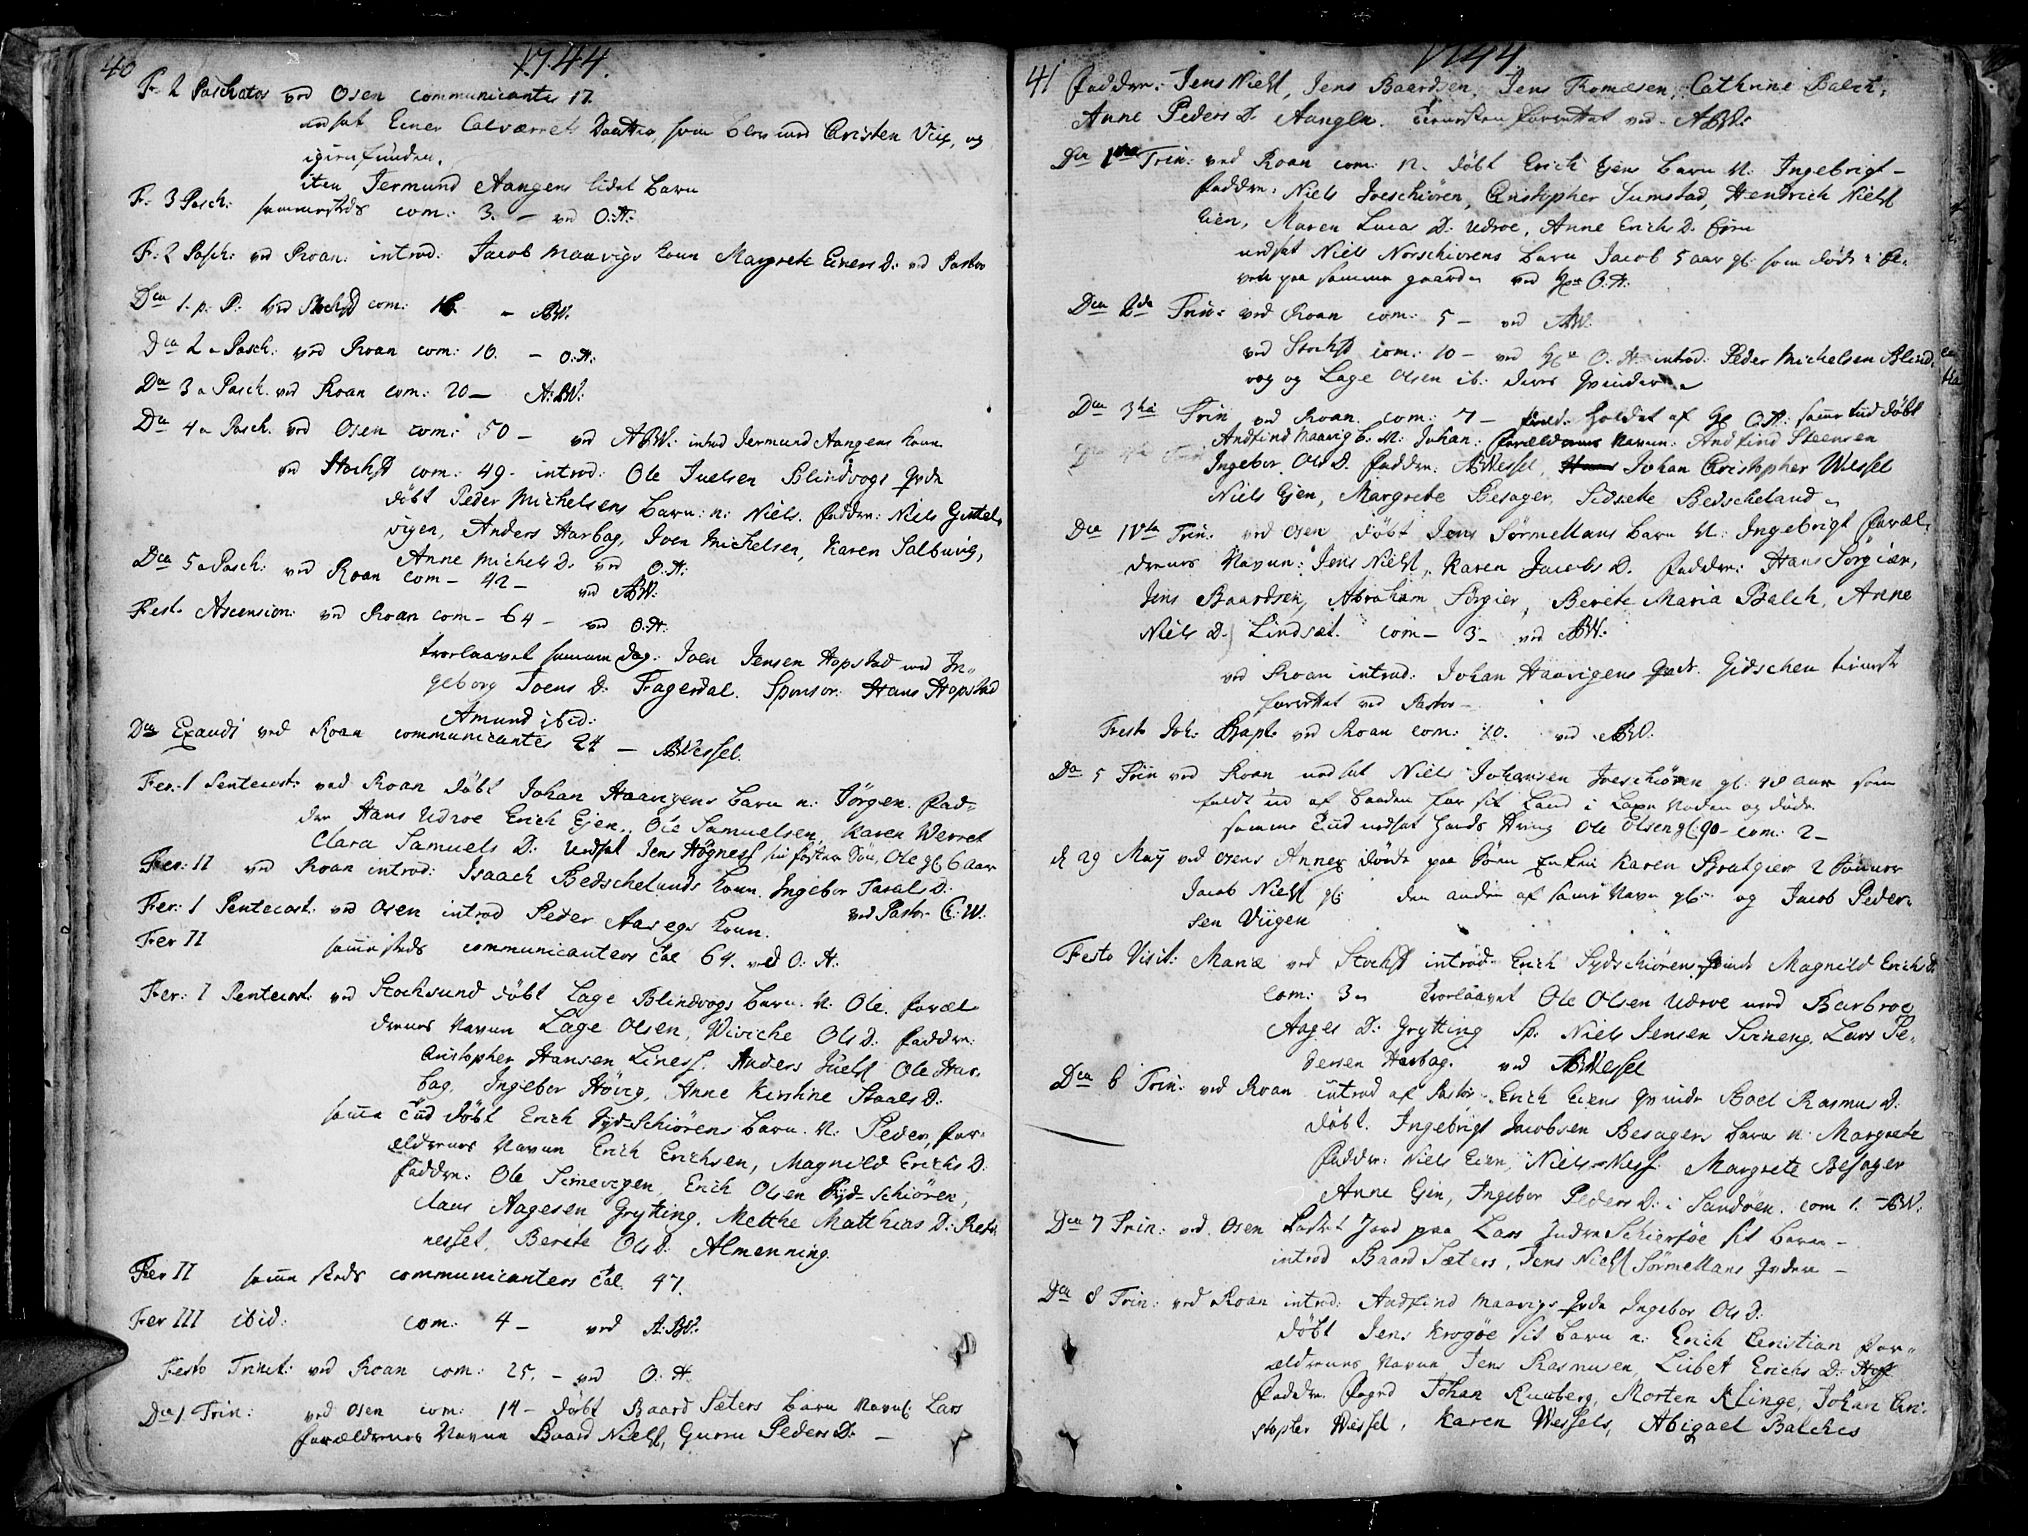 40
1744.
F. 2 Paschatos ved Osen communicantes 17.
udsat Einer Calværrets Daatter, som blev med Christen Viig, og
igien funden.
iten Jermund Aangens lidet barn
F. 3 Pasch: sammesteds com: 3. – ved O:H:
F: 2 Pasch: ved Roan: introd: Jacob Maavigs kone Margrete Einers D: ved Pastor
Dca 1. p. P: ved Stochsd com: 16. – ABW:
Dca 2 a Pasch: ved Roan com: 10. – O:H:
Dca 3 a Pasch. ved Roan com: 20 – A:BW:
Dca 4 a Pasch. ved Osen com: 50 – ved ABW: introd Jermund Aangens kone
ved Stochsd com: 49. introd: Ole Juelsen Blindvogs qvde
døbt Peder Michelsens barn: n: Niels. faddre: Niels Gittel,
vigen, Anders Harbag, Joen Michelsen, Karen Salbuvig,
Anne Michels D: ved O:H:
Dca 5 a Pasch: ved Roan com – 42 – ved ABW:
Festo Ascension: ved Roan com – 64 – ved O:H:
trorlaavet samme dag: Joen Jensen Hopstad med In=
geborg Joens D: Fagerdal. Sponsor: Hans Hopstad
Amund ibid:
Dca Exaudi ved Roan communicantes 24 – ABWessel.
Fer: 1 Pentecost: ved Roan døbt Johan Haavigens barn n: Jörgen. fad=
dre Hans Udroe Erich Ejen, Ole Samuelsen, Karen Werret
Clara Samuels D: Udsat Jens Högness sin foster Søn, Ole gl 6 aar
Fer: II ved Roan introd: Isaach Bedschelands kone. Ingebor Taral D:
ved Pastor C:W.
Fer: 1 Pentecost: ved Osen introd Peder Aasegs kone.
Fer II samesteds communicanters tal 64. ved O: H:
Fer: 1 Pentecost: ved Stochsund døbt Lage Blindvogs barn. N: Ole. foræl
drenes Navn Lage Olsen, Wiviche Ols D: faddre:
Christopher Hansen Liness. Anders Juels Ole Har
bag, Ingebor Höirg, Anne Kirstine Staals D:
samme tiid døbt Erich Syd=Schiörens barn. N: Peder, for=
ældrenes Navn Erich Erichsen, Magnild Erichs D:
faddre: Ole Simevigen, Erich Olsen Syd=Schiören,
Claus Aagesen Grytting. Metthe Matthias D: Refs
nesset. Berete Ols D: Almenning
Fer II samme steds communicanters tal 47.
Fer III ibid: com: 4 – ved A:BW:
Festo Trinit: ved Roan com: 25. – ved O: H.
Dca 1 Trin: ved Osen com: 14 – døbt Baard Sæters barn Navnl. Lars
forældrenes Navne Baard Niels, Guru Peders D: –
41
1744
faddre: Jens Niels, Jens Baardsen, Jens Thomesen, Cathrine Balch,
Anne Peders D: Aangln. Tienesten forrettet ved – ABW:
Dca 1ma Trin: ved Roan com: 12. døbt Erich Ejens barn N: Ingebrigt –
faddre: Niels Joeschiören, Christopher Sumstad, Hendrich Niels
Eien, Maren Lucas D: Udroe, Anne Erichs D: Eien
udsat Niels Norschiörens barn Jacob 5 aar gl: som døde i Be,
vele paa samme gaard – ved Hr O:H:
Dca 2da Trin: ved Roan com: 5 – ved ABW:
ved Stochsd com: 10 – ved Hr O:H: introd: Peder Michelsen Blind,
vog og Lage Olsen ib: deres qvinder –
Dca 3tia Trin ved Roan com: 7 – holdet af Hr O:H: samme tiid døbt
Andfind Maavig b. N: Johan: forældrenes Navn: Andfind Steensen
Ingebor Ols D. faddre: ABWessel, Johan Christopher Wessel
Niels Ejen, Margrete Besager, Sidsele Bedscheland –
Dca IVta Trin: ved Osen døbt Jens Sörmellans barn N: Ingebrigt foræl,
drenes Navn: Jens Niels, Karen Jacobs D. faddre: Hans Sörgier,
Jens Baardsen, Abraham Sörgier, Berete Maria Balch, Anne
Niels D: Lindsæt. com – 3 – ved ABW:
ved Roan introd: Johan Haavigens qvde. Gidschen tieneste
forrettet ved Pastor –
Festo Joh: Bapt: ved Roan com: 10. ved ABW.
Da 5 Trin ved Roan udsat Niels Johansen Joeschören gl: 18 aar som
faldt ud af baaden for sit Land i Løpe Noden og døde
samme tiid udsat hands Dreng Ole Olsen gl: 90 – com: 2 –
d. 29 Maij ved Osens Annex døde paa Søen Enken Karen Skoutgier 2 Sønner
Jacob Niels gl: den anden af samme Navn gl: og Jacob Peder,
sen Viigen
Festo Visit: Mariæ ved Stochsd introd: Erich Sydschiörens qvinde Magnild Erichs D:
com: 3 – Trorlaavet Ole Olsen Udroe med Barbroe
Aages D: Grytting Sp: Niels Jensen Sirneng. Lars Pe,
dersen Harbag. ved ABWessel
Dca 6 Trin: ved Roan introd af Pastor Erich Eiens qvinde Boel Rasmus D:
døbt. Ingebrigt Jacobsen Besagers barn N: Margrete
faddre: Niels Eien, Niels Ness. Margrete Besager
Anne Ejen, Ingebor Peders D: i Sandöen. com 1. – ABW.
Dca 7 Trin: ved Osen kastet Jord paa Lars Indre Schierföe sit barn –
introd Baard Sæters, Jens Niels Sörmellans qvder –
Dca 8 Trin: ved Roan introd: Andfind Maavigs qvde Ingebor Ols D:
døbt Jens Krogöe sit barn n: Erich Christian for=
ældrenes Navn Jens Rasmusen, Lisbet Erichs D: Hoff
faddre. Fogd Johan Ruuberg, Morten Klinge, Johan Chri,
stopher Wessel, Karen Wessels, Abigael Balches